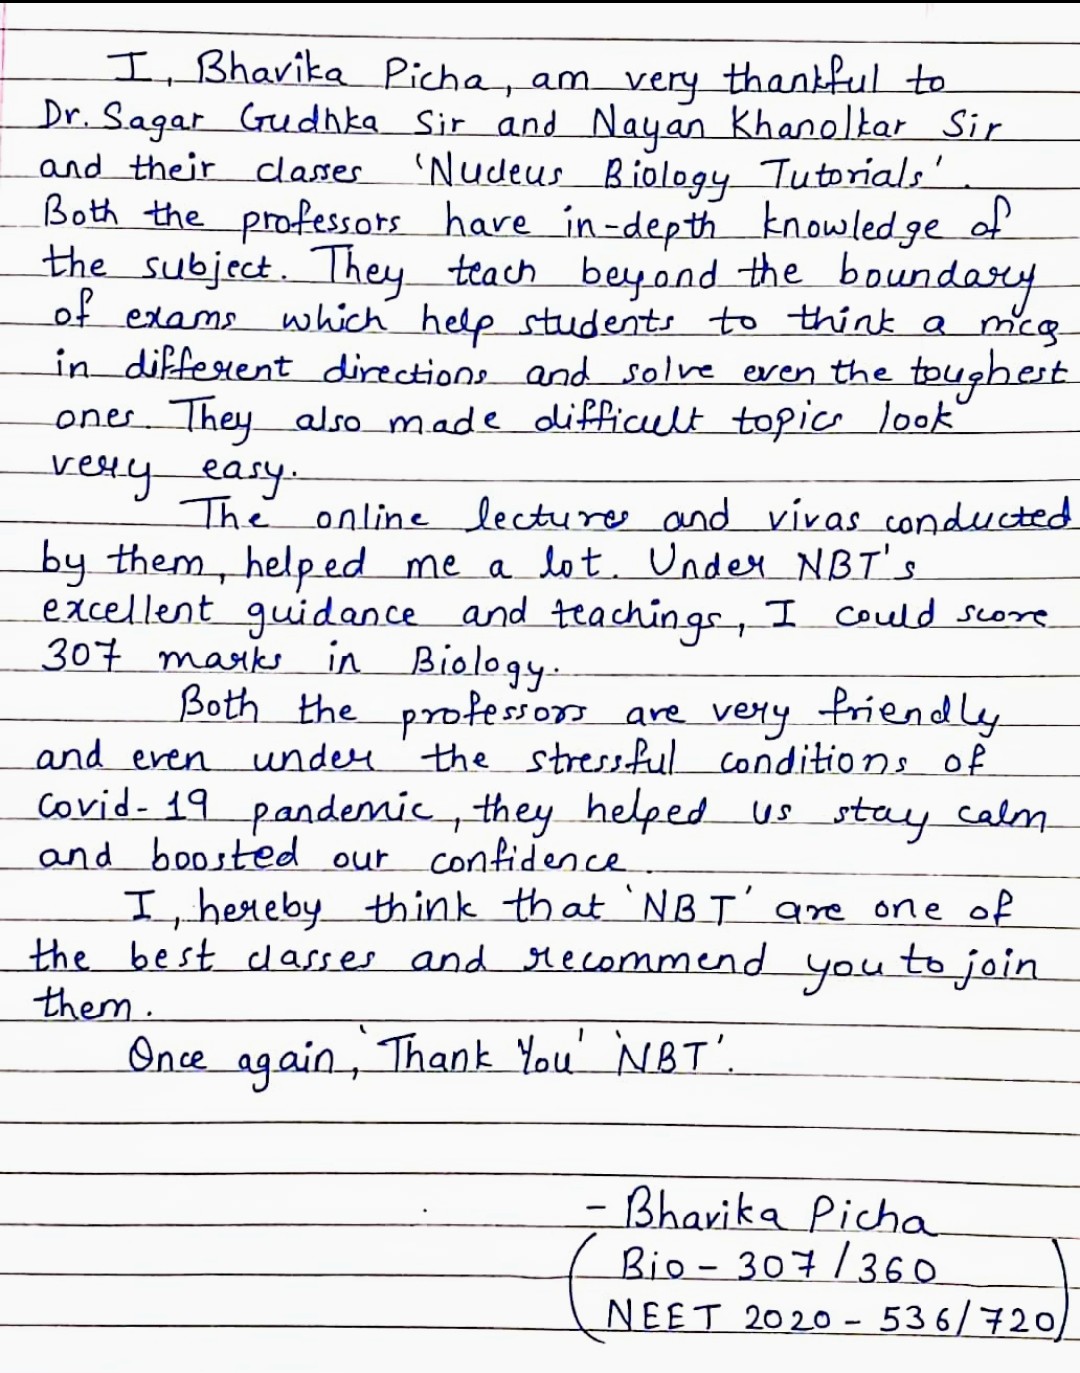 I, Bhavika Picha, am very thankful to
Dr. Sagar Gudhka Sir and Nayan Khanolkar Sir
and their classes 'Nucleus Biology Tutorials'.
Both the professors have in-depth knowledge of
the subject. They teach beyond the boundary
of exams which help students to think a mcq
in different directions and solve even the toughest
ones. They also made difficult topics look
very easy.
The online lectures and vivas conducted
by them, helped me a lot. Under NBT's
excellent guidance and teachings, I could score
307 marks in Biology.
Both the professors are very friendly
and even under the stressful conditions of
Covid-19 pandemic, they helped us stay calm
and boosted our confidence.
I, hereby think that 'NBT' are one of
the best classes and recommend you to join
them.
Once again, 'Thank You' 'NBT'.
- Bhavika Picha
(Bio - 307/360
NEET 2020 - 536/720)